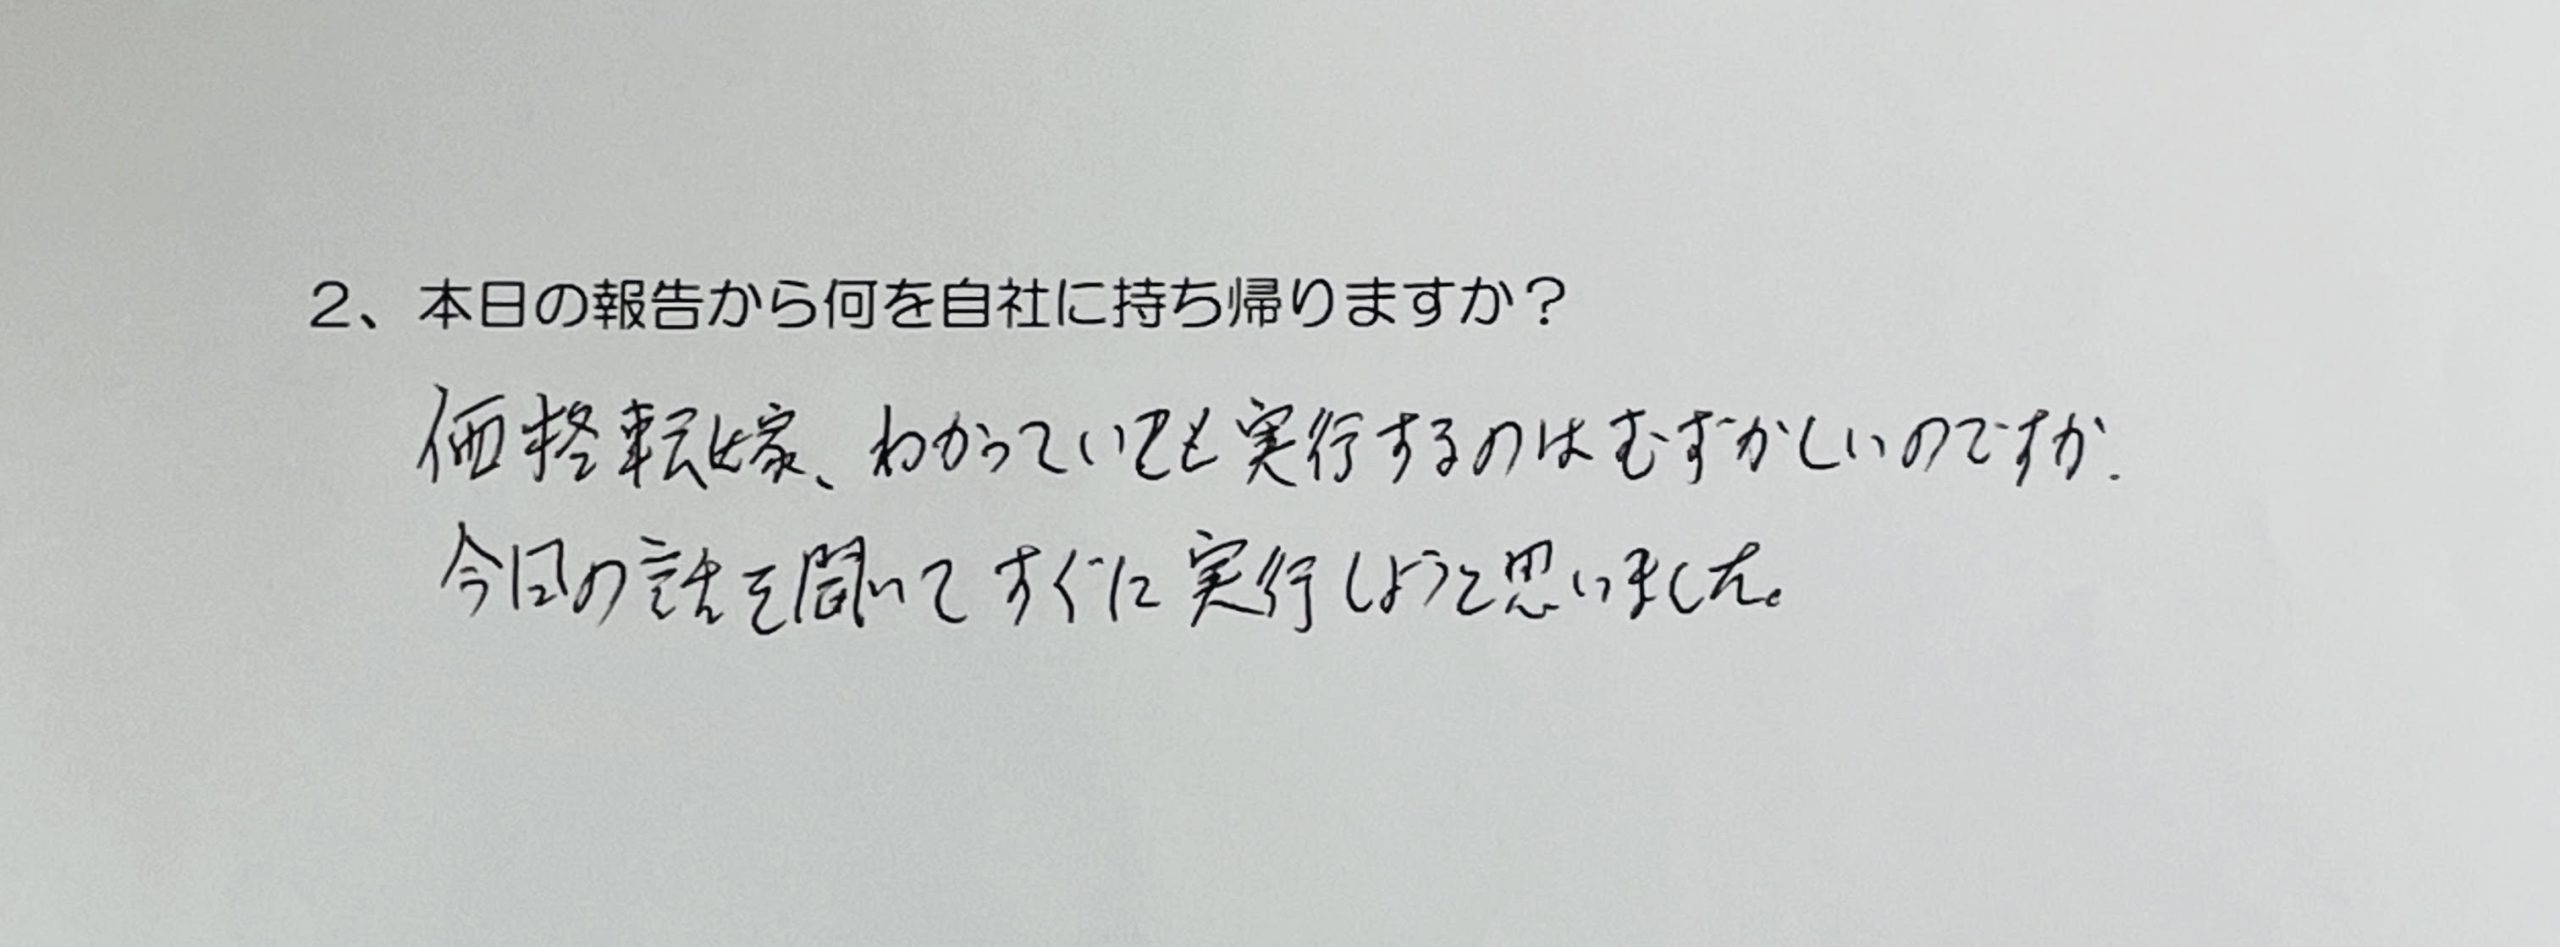 2、本日の報告から何を自社に持ち帰りますか？
価格転嫁、わかっていても実行するのはむずかしいのですが.
今日の話を聞いてすぐに実行しようと思いました。